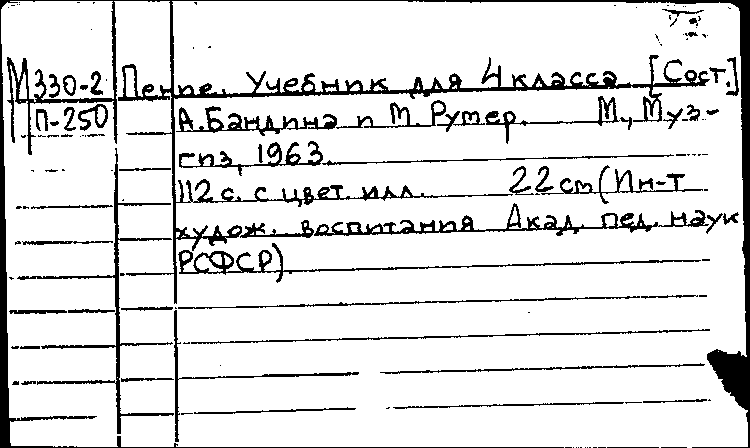 М330-2 Пение. Учебник для 4 класса [Сост.]
П-250 А.Бандина и М. Румер. М., Муз-
гиз, 1963.
112 с. с цвет. илл. 22 см (Ин-т
худож. воспитания Акад. пед. наук
РСФСР).